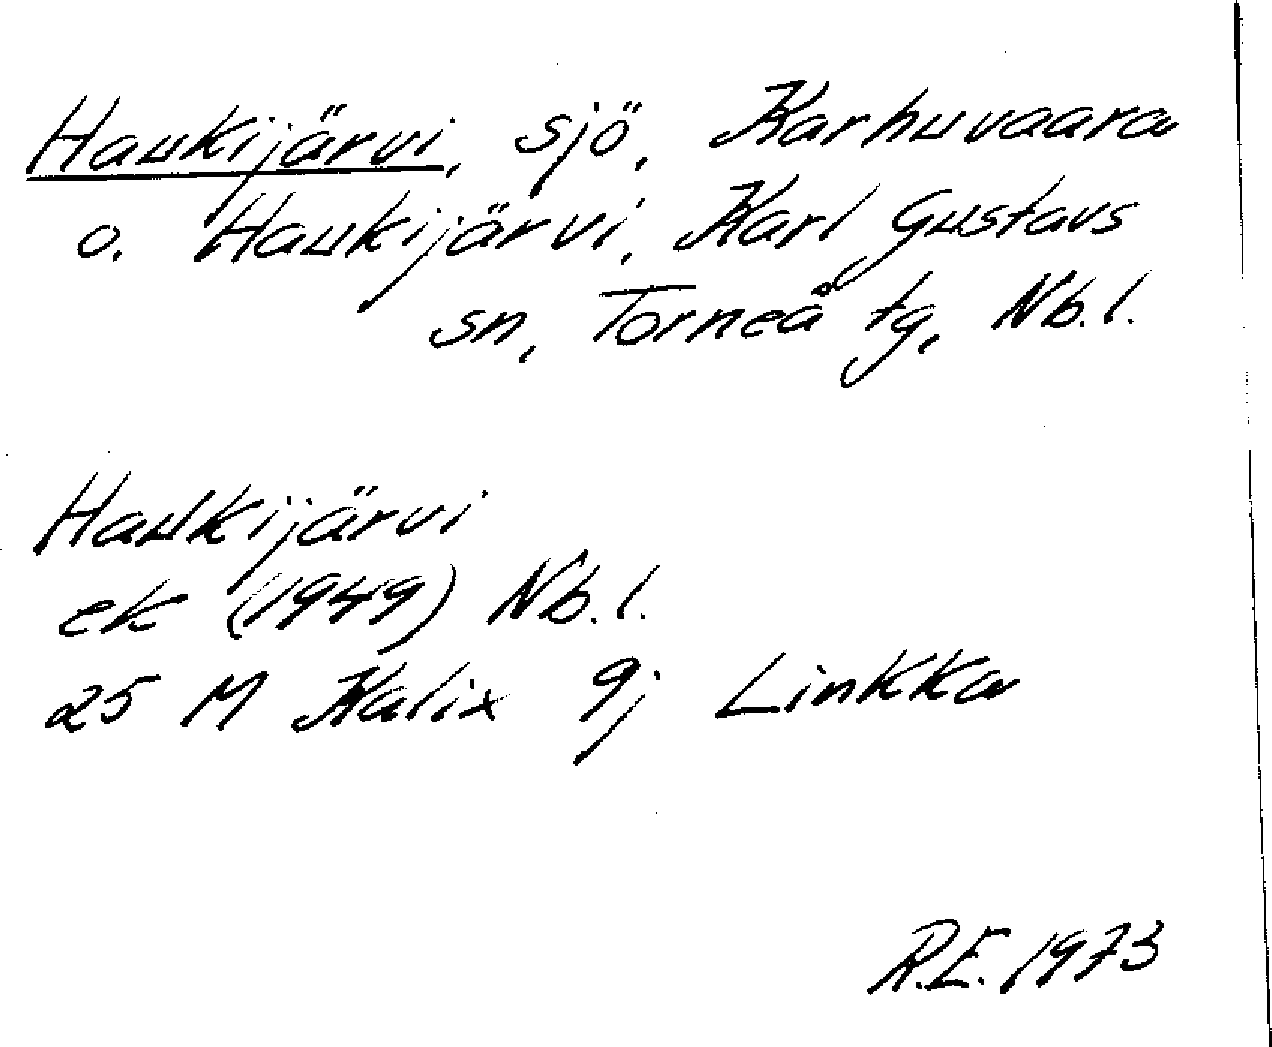 Haukijärvi, sjö, Karhuvaara
o. Haukijärvi, Karl Gustavs
sn, Torneå tg, Nb.l.
Haukijärvi
ek (1949) Nb.l.
25 M Kalix 9j Linkka
R.E. 1973